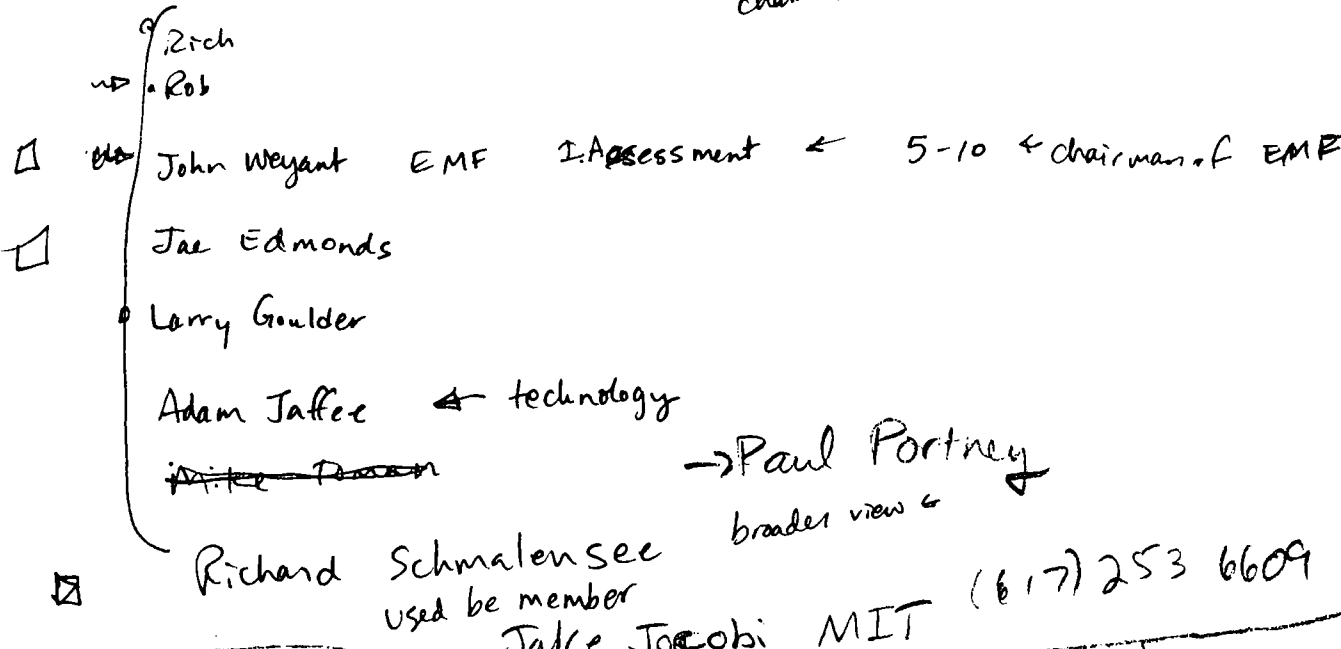 Rich
Rob
John Weyant EMF I. Assessment ← 5-10 ← chairman of EMF
Jae Edmonds
Larry Goulder
Adam Jaffee ← technology
→Paul Portney
broader view ←
Richard Schmalensee
used be member
(617) 253 6609
Jacobi MIT